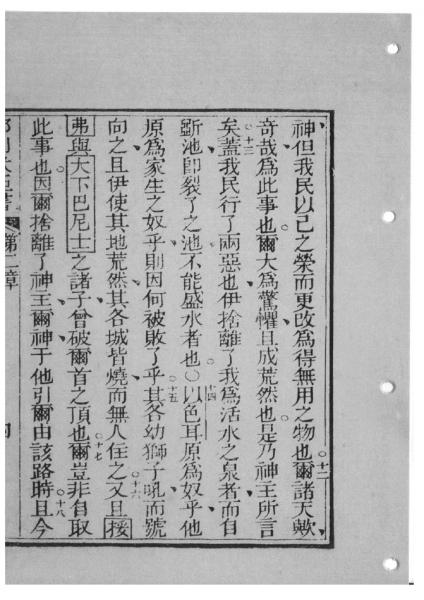 神但我民以己之榮而更改為得無用之物也爾諸天歟
十二
奇哉為此事也爾大為驚懼且成荒然也是乃神主所言
十三
矣蓋我民行了兩惡也伊捨離了我為活水之泉者而自
斵池即裂了之池不能盛水者也○以色耳原為奴乎他
十四
原為家生之奴乎則因何被敗了乎其各幼獅子吼而號
十五
向之且伊使其地荒然其各城皆燒而無人住之又且接
十六
弗與大下巴尼士之諸子曾破爾首之頂也爾豈非自取
十七
此事也因爾捨離了神王爾神于他引爾由該路時且今
十八
第二章